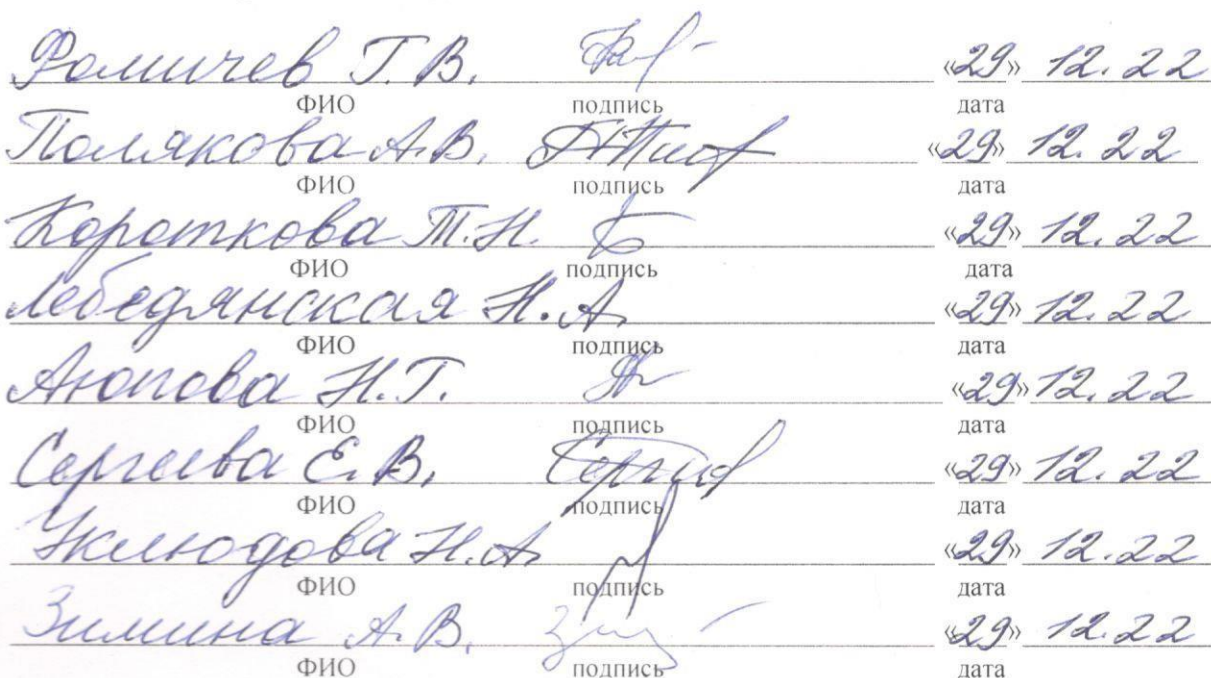 Фомичев Г. В. «29» 12.22
ФИО подпись дата
Полякова А.В. «29» 12.22
ФИО подпись дата
Короткова Т.Н. «29» 12.22
ФИО подпись дата
Лебедянская Н.А. «29» 12.22
ФИО подпись дата
Аюпова Н.Г. «29» 12.22
ФИО подпись дата
Сергеева Е.В. «29» 12.22
ФИО подпись дата
Неклюдова Н.А. «29» 12.22
ФИО подпись дата
Зимина А.В. «29» 12.22
ФИО подпись дата